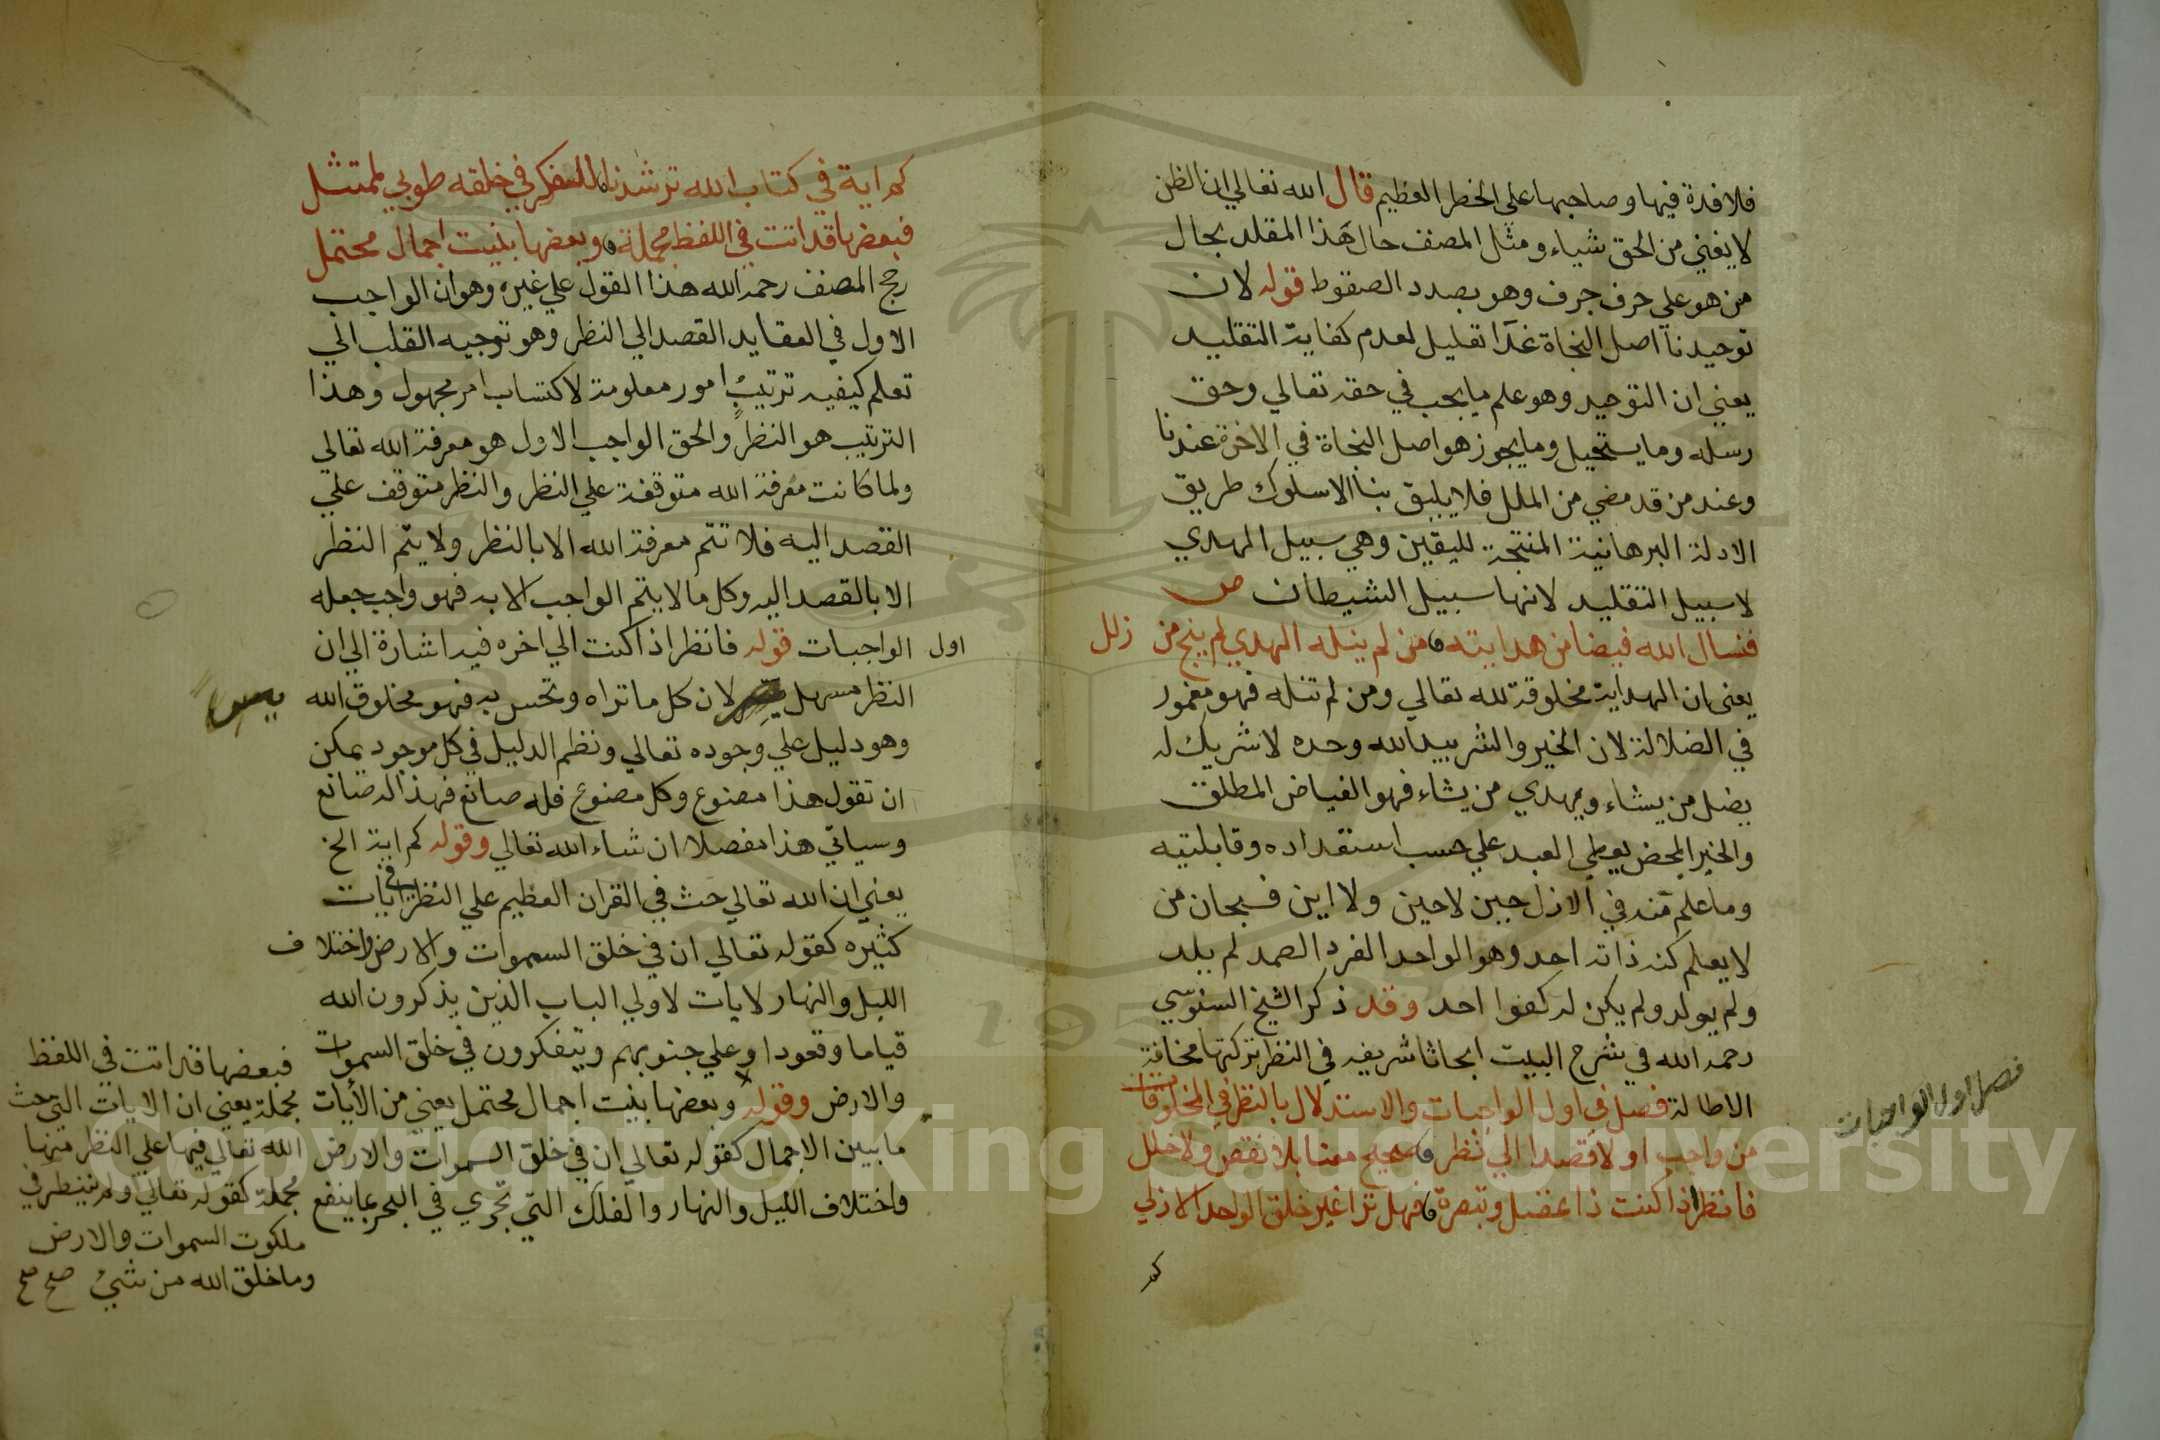 فلا فدة فيها وصاحبها على الخطر العظيم قال الله تعالي ان الظن
لا يغني من الحق شياء ومثل المصنف حال هذا المقلد بحال
من هو علي حرف جرف وهو بصدد الصقوط قوله لان
توحيدنا اصل النجاة غدا تعليل لعدم كفاية التقليد
يعني ان التوحيد وهو علم ما يجب في حقه تعالي وحق
رسله وما يستحيل وما يجوز هو اصل النجاة في الاخرة عندنا
وعند من قد مضي من الملل فلا يليق بنا الا سلوك طريق
الادلة البرهانية المنتجة لليقين وهي سبيل المهدي
لا سبيل التقليد لانها سبيل الشيطان ص
فنسال الله فيضا من هدايته ومن لم ينله الهدي لم ينج من زلل
يعني ان الهداية مخلوقة لله تعالي ومن لم تنله فهو مغمور
في الضلالة لان الخير والشر بيد الله وحده لا شريك له
يضل من يشاء ويهدي من يشاء فهو الفياض المطلق
والخير المحض يعطي العبد علي حسب استعداده وقابليته
وما علم منه في الازل حين لا حين ولا اين فسبحان من
لا يعلم كنه ذاته احد وهو الواحد الفرد الصمد لم يلد
ولم يولد ولم يكن له كفوا احد وقد ذكر الشيخ السنوسي
رحمه الله في شرح البيت ابحاثا شريفه في النظر تركتها مخافة
الاطالة فصل في اول الواجبات والاستدلال بالنظر في المخلوقات
من واجب اولا قصدا الي نظر صحيح معنا بلا نقص ولا خلل
فانظر اذا كنت ذا عقل وتبصرة فهل ترا غير خلق الواحد الازلي
كم
فصل اول الواجبات
كم اية في كتاب الله ترشدنا للفكر في خلقه طوبي لممتثل
فبعضها قد اتت في اللفظ مجملة وبعضها بينت اجمال محتمل
رجح المصنف رحمه الله هذا القول علي غيره وهو ان الواجب
الاول في العقايد القصد الي النظر وهو توجيه القلب الي
تعلم كيفيه ترتيب امور معلومة لاكتساب امر مجهول وهذا
الترتيب هو النظر والحق الواجب الاول هو معرفة الله تعالي
ولما كانت معرفة الله متوقفة علي النظر والنظر متوقف علي
القصد اليه فلا تتم معرفة الله الا بالنظر ولا يتم النظر
الا بالقصد اليه وكل ما لا يتم الواجب الا به فهو واجب جعله
اول الواجبات قوله فانظر اذا كنت الي اخره فيه اشارة الي ان
النظر سهل لان كل ما تراه وتحس به فهو مخلوق الله
وهو دليل علي وجوده تعالي ونظم الدليل في كل موجود يمكن
ان تقول هذا مصنوع وكل مصنوع فله صانع فهذا له صانع
وسياتي هذا مفصلا ان شاء الله تعالي وقوله كم اية الخ
يعني ان الله تعالي حث في القران العظيم علي النظر في ايات
كثيره كقوله تعالي ان في خلق السموات والارض واختلاف
الليل والنهار لايات لاولي الباب الذين يذكرون الله
قياما وقعودا وعلي جنوبهم ويتفكرون في خلق السموات
والارض وقوله وبعضها بينت اجمال محتمل يعني من الأيات
ما يبين الاجمال كقوله تعالي ان في خلق السموات والارض
واختلاف الليل والنهار والفلك التي تجري في البحر بما ينفع
فبعضها قد اتت في اللفظ
مجملة يعني ان الايات التي حث
الله تعالي فيها علي النظر منها
مجملة كقوله تعالي اولم ينظر في
ملكوت السموات والارض
وما خلق الله من شيئ صح صح
Copyright © King Saud University